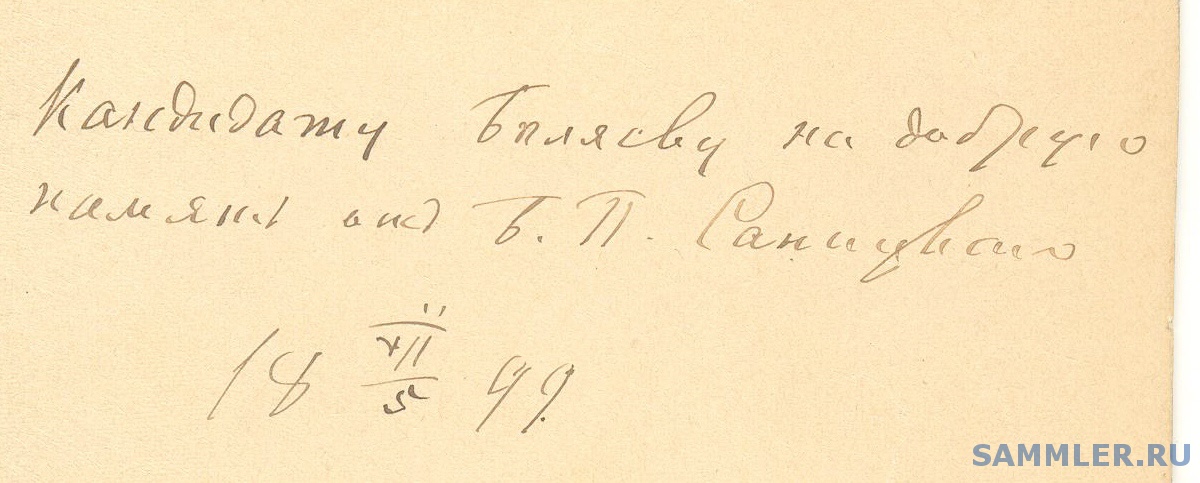 Кандидату Бѣляеву на добрую
память отъ Б. П. Саницкаго
18 XII/5 99.
SAMMLER.RU